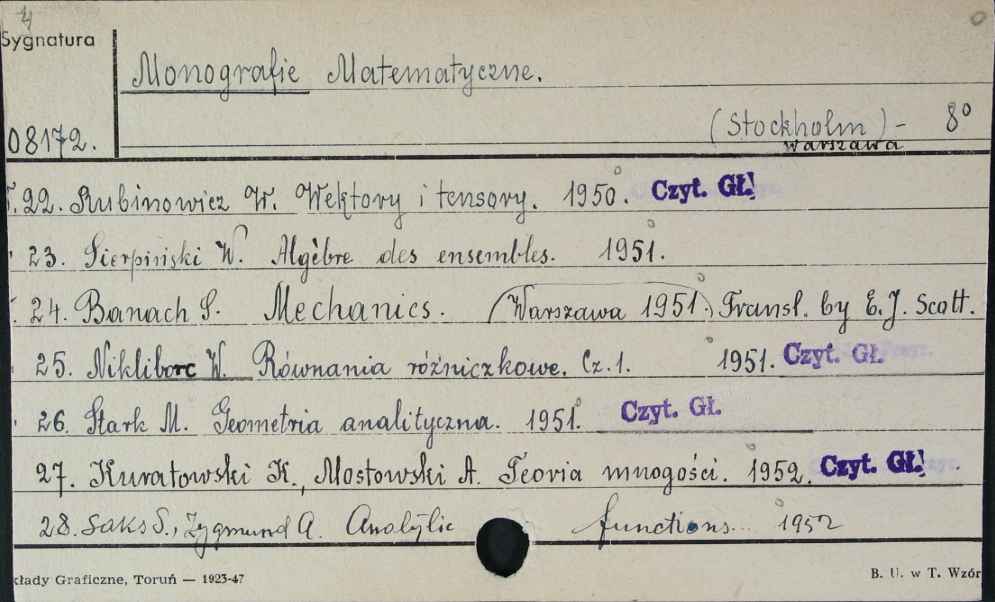 Sygnatura
Monografie Matematyczne.
(Stockholm) - 8º
08172.
Warszawa
22. Rubinowicz W. Wektory i tensory. 1950. Czyt. Gł.
23. Sierpiński W. Algèbre des ensembles. 1951.
24. Banach S. Mechanics. (Warszawa 1951.) Transl. by E.J. Scott.
25. Nikliborc W. Równania różniczkowe. Cz. 1. 1951. Czyt. Gł.
26. Stark M. Geometria analityczna. 1951. Czyt. Gł.
27. Kuratowski K., Mostowski A. Teoria mnogości. 1952. Czyt. Gł.
28. Saks S., Zygmund A. Analytic functions... 1952
kłady Graficzne, Toruń — 1923-47 B. U. w T. Wzór